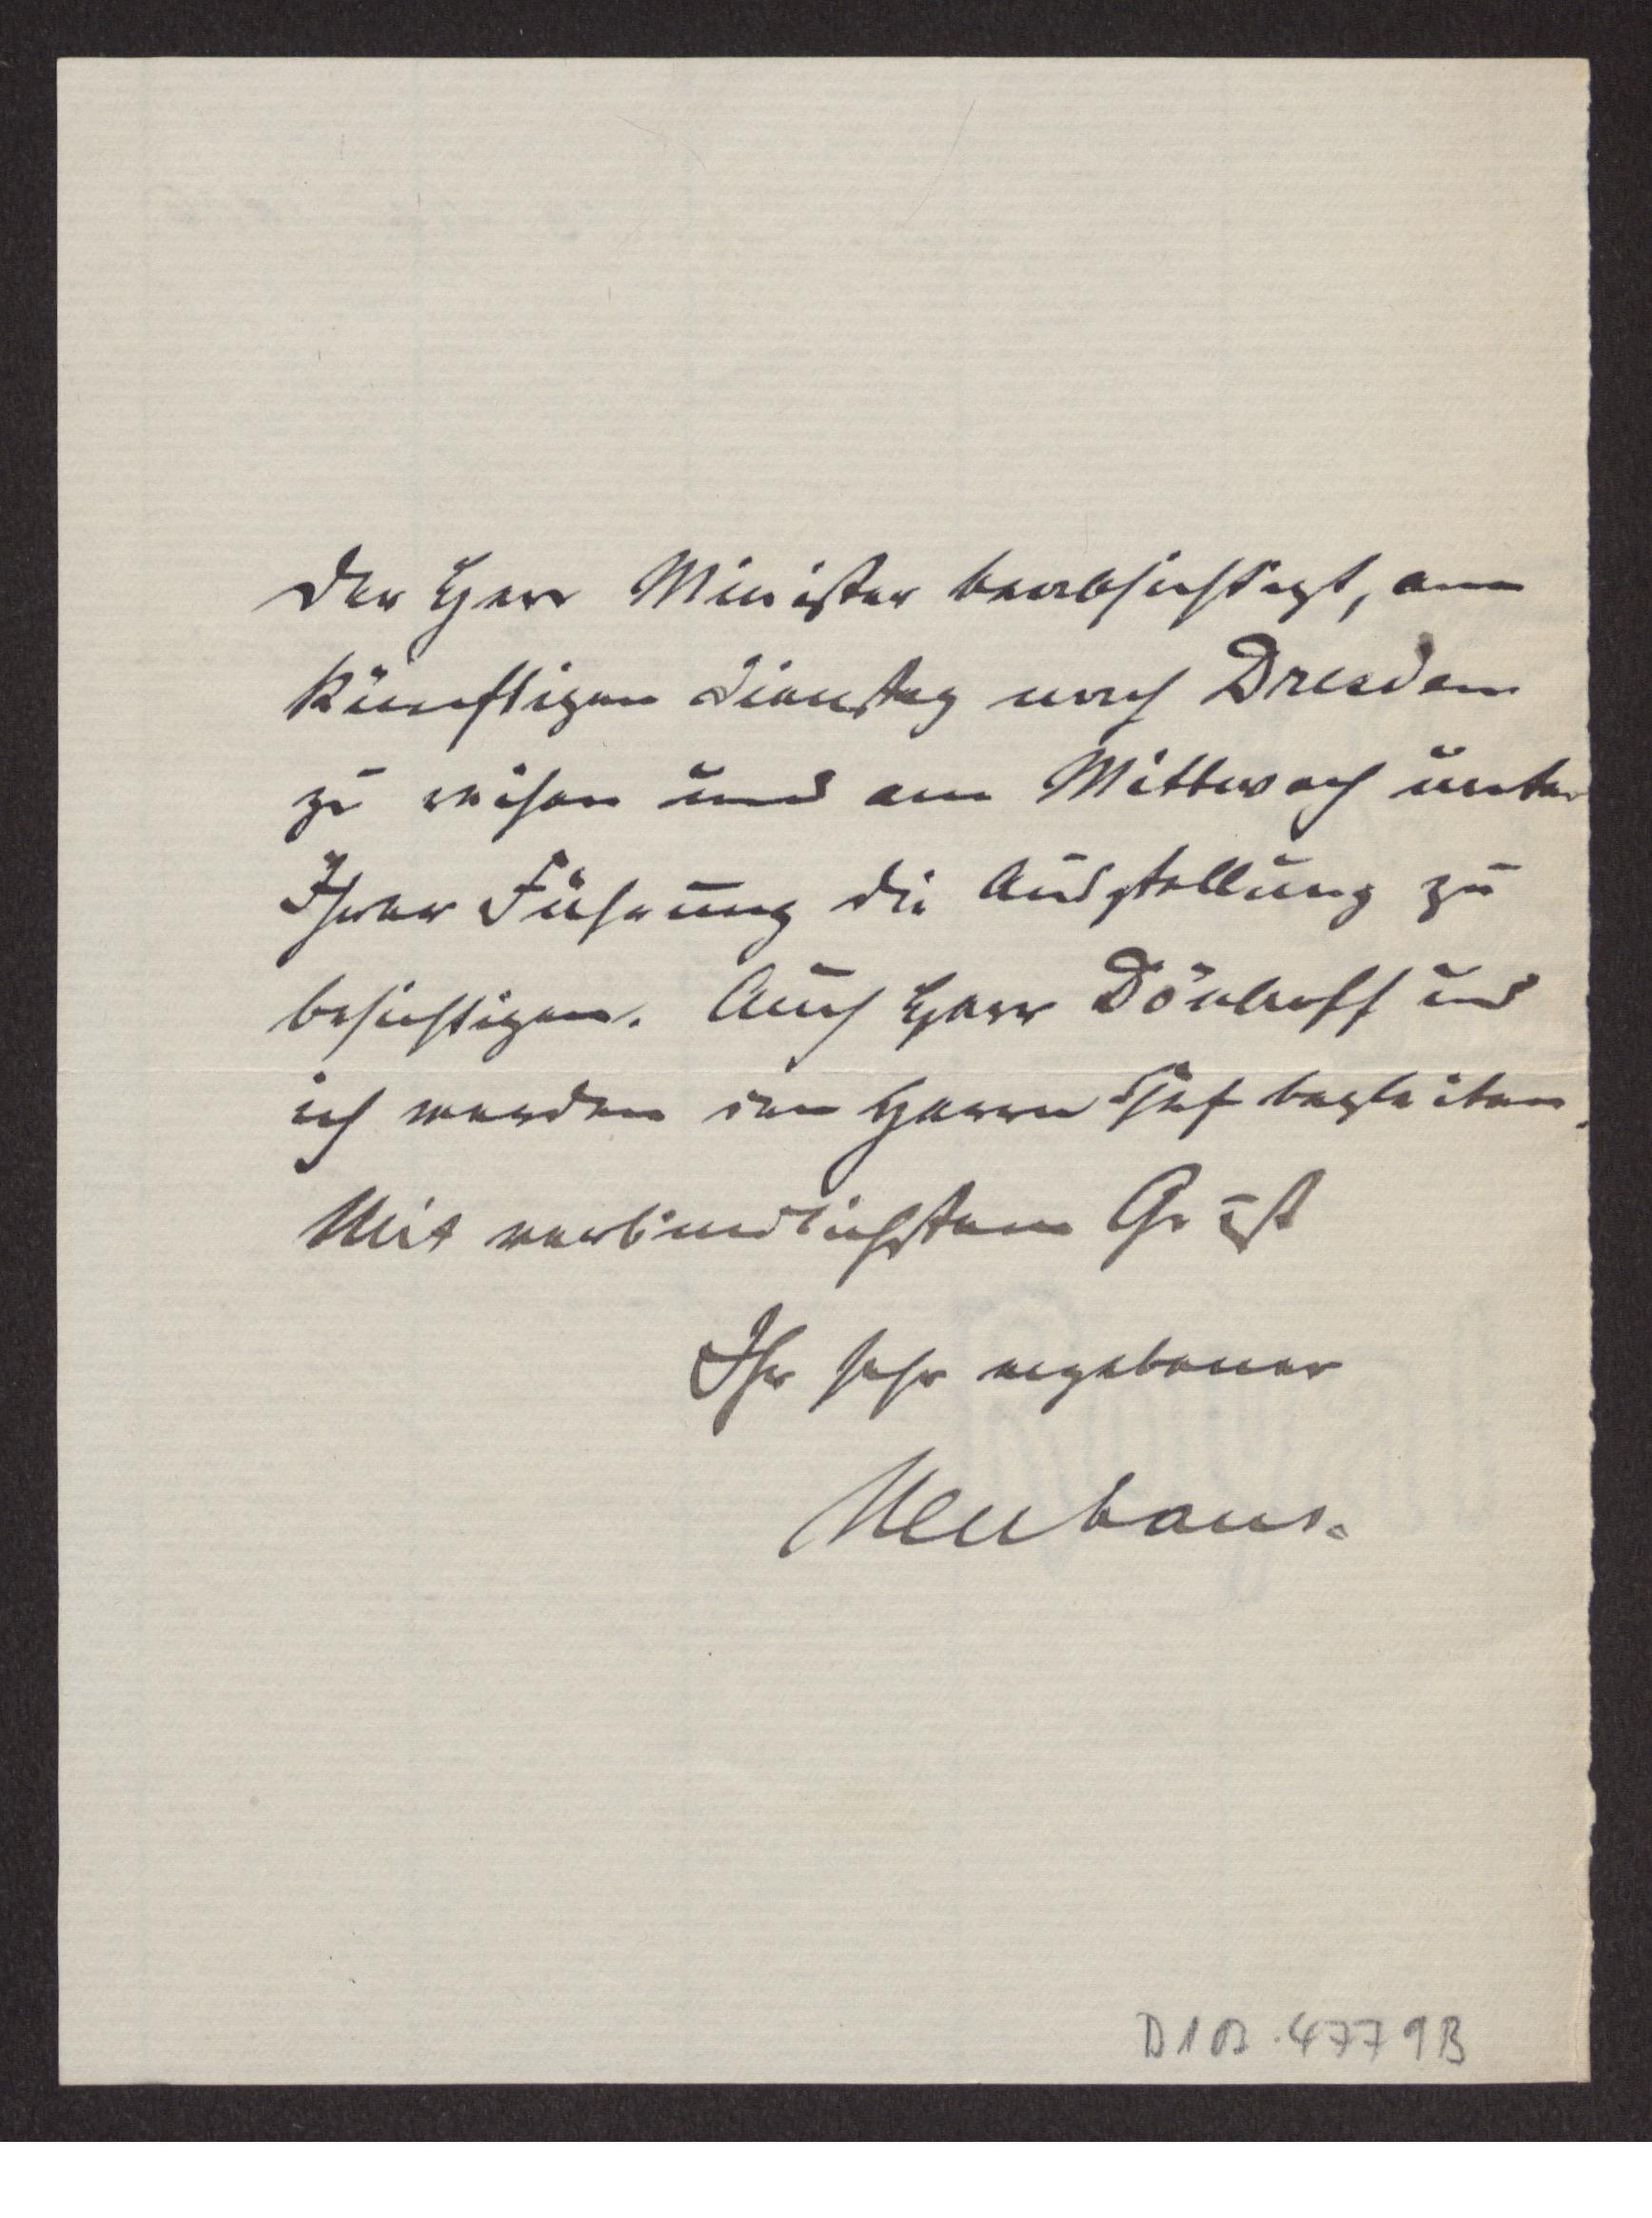 Der Herr Minister beabsichtigt, am
künftigen Dienstag nach Dresden
zu reisen und am Mittwoch unter
Ihrer Führung die Ausstellung zu
besichtigen. Auch Herr Dönhoff und
ich werden den Herrn Chef begleiten.
Mit verbindlichstem Gruß
Ihr sehr ergebener
Neuhaus.
D102.4779B